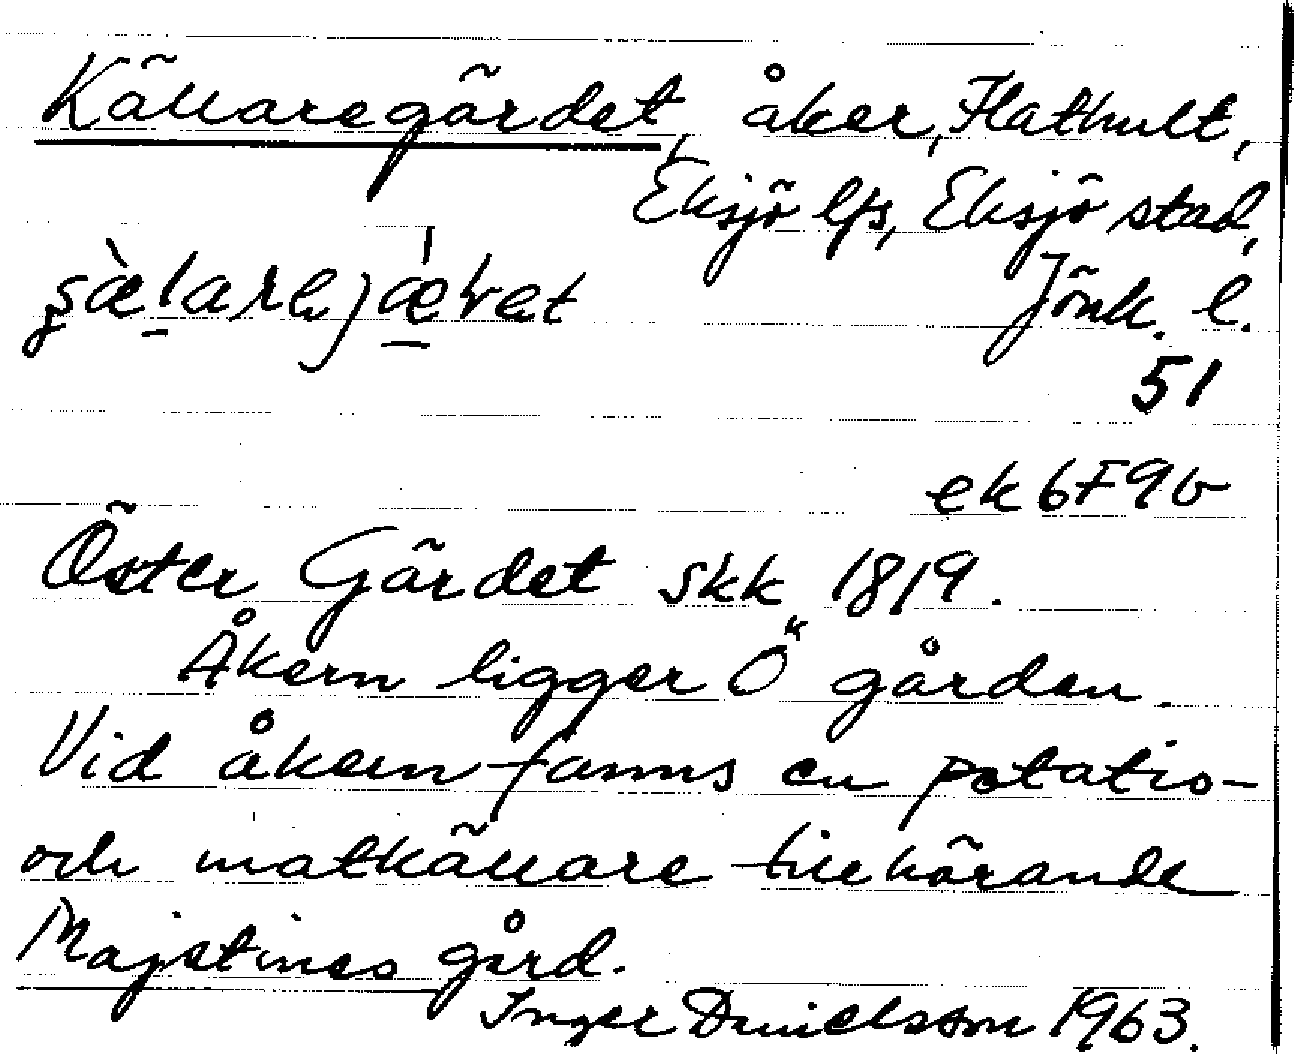 Källaregärdet, åker, Flathult,
Eksjö lfs, Eksjö stad,
Jönk. l.
51
ek 6F9b
Öster Gärdet skk 1819.
Åkern ligger Ö" gården.
Vid åkern fanns en potatis-
och matkällare tillhörande
Majstines gård.
Inger Danielsson 1963.